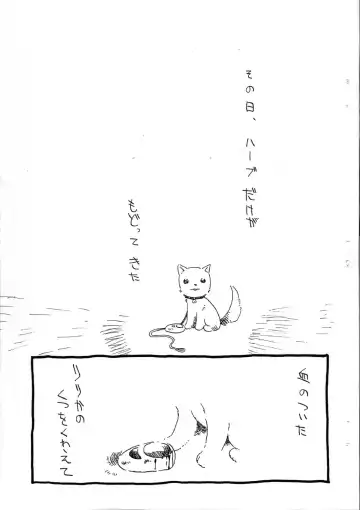 その日、ハーブ だけが
もどって きた
血のついた
リリィの
くつをくわえて